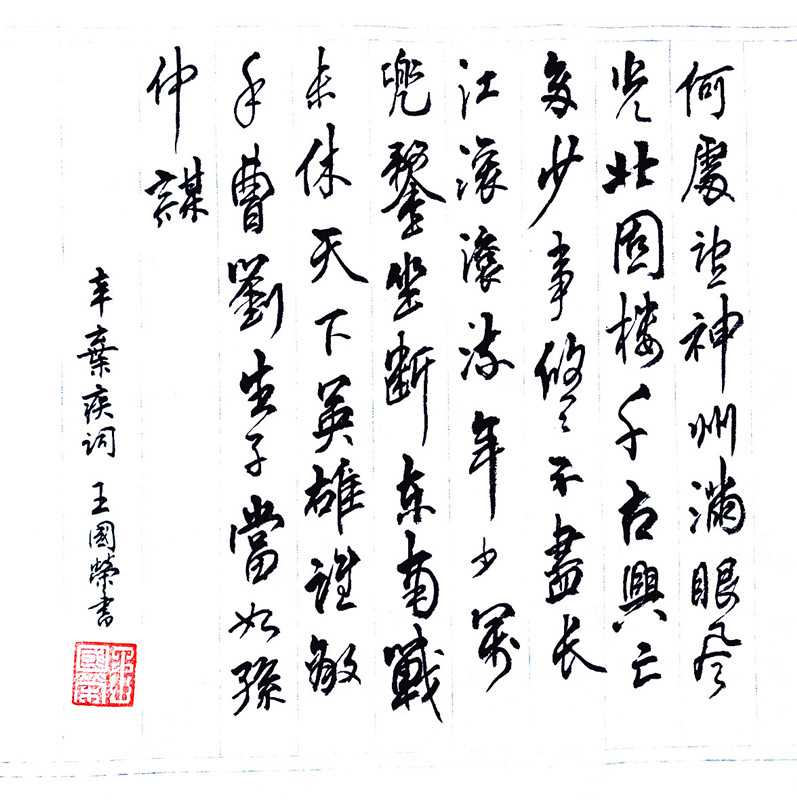 何處望神州滿眼風
光北固樓千古興亡
多少事悠々不盡長
江滾滾流年少萬
兜鍪坐斷東南戰
未休天下英雄誰敵
手曹劉生子當如孫
仲謀
辛棄疾詞 王國榮書